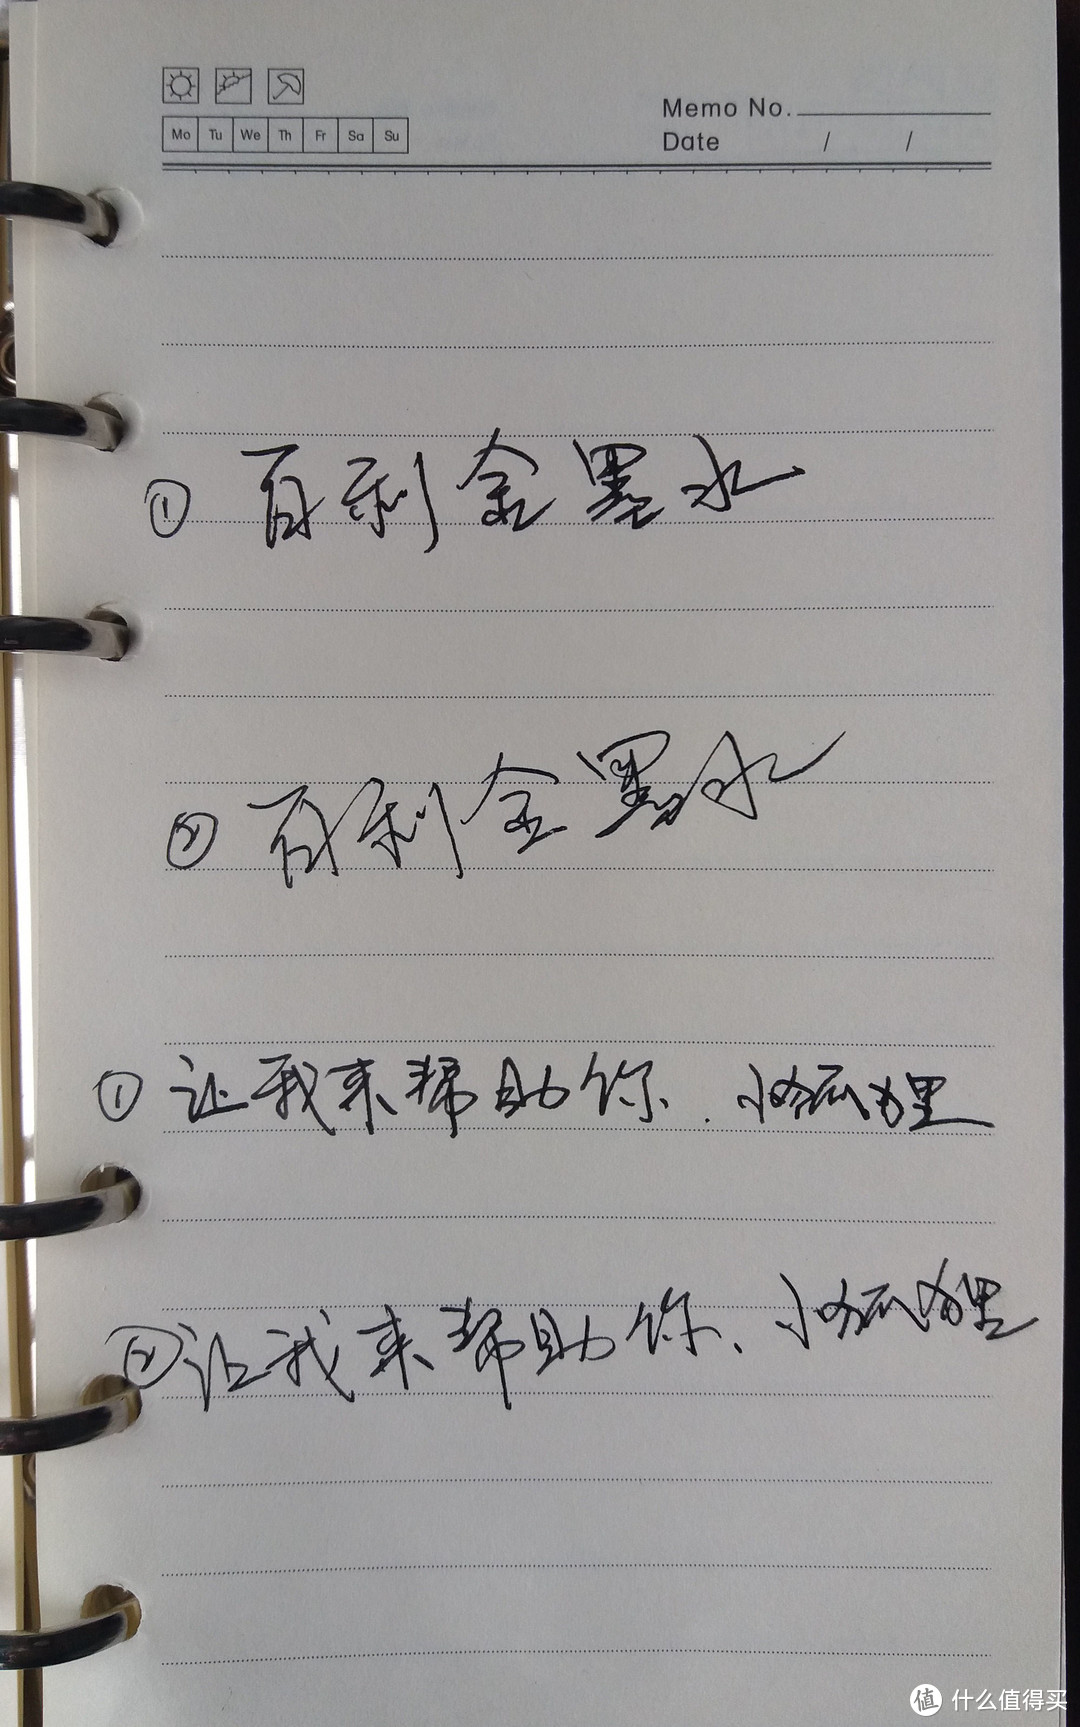 Memo No.
Mo Tu We Th Fr Sa Su
Date / /
① 百利金墨水
② 百利金墨水
① 让我来帮助你.小狐狸
② 让我来帮助你、小狐狸
值 什么值得买